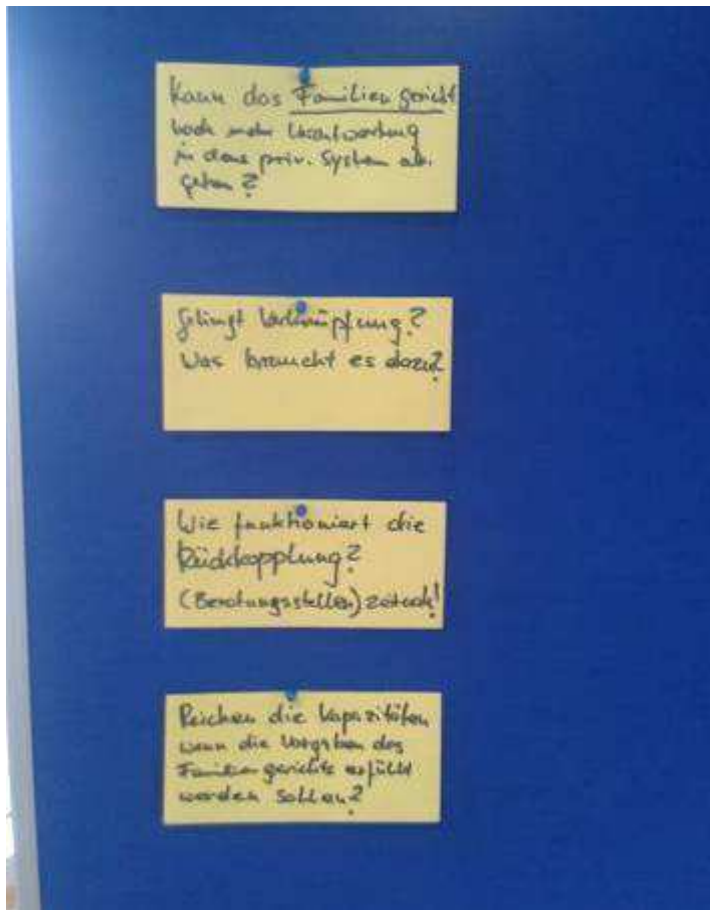 Kann das Familiengericht
noch mehr Verantwortung
in dens priv. System ab-
geben?
Gelingt Verknüpfung?
Was braucht es dazu?
Wie funktioniert die
Rückkopplung?
(Beratungsstellen)
Reichen die Kapazitäten
wenn die Vorgaben des
Familiengerichts erfüllt
werden sollen?